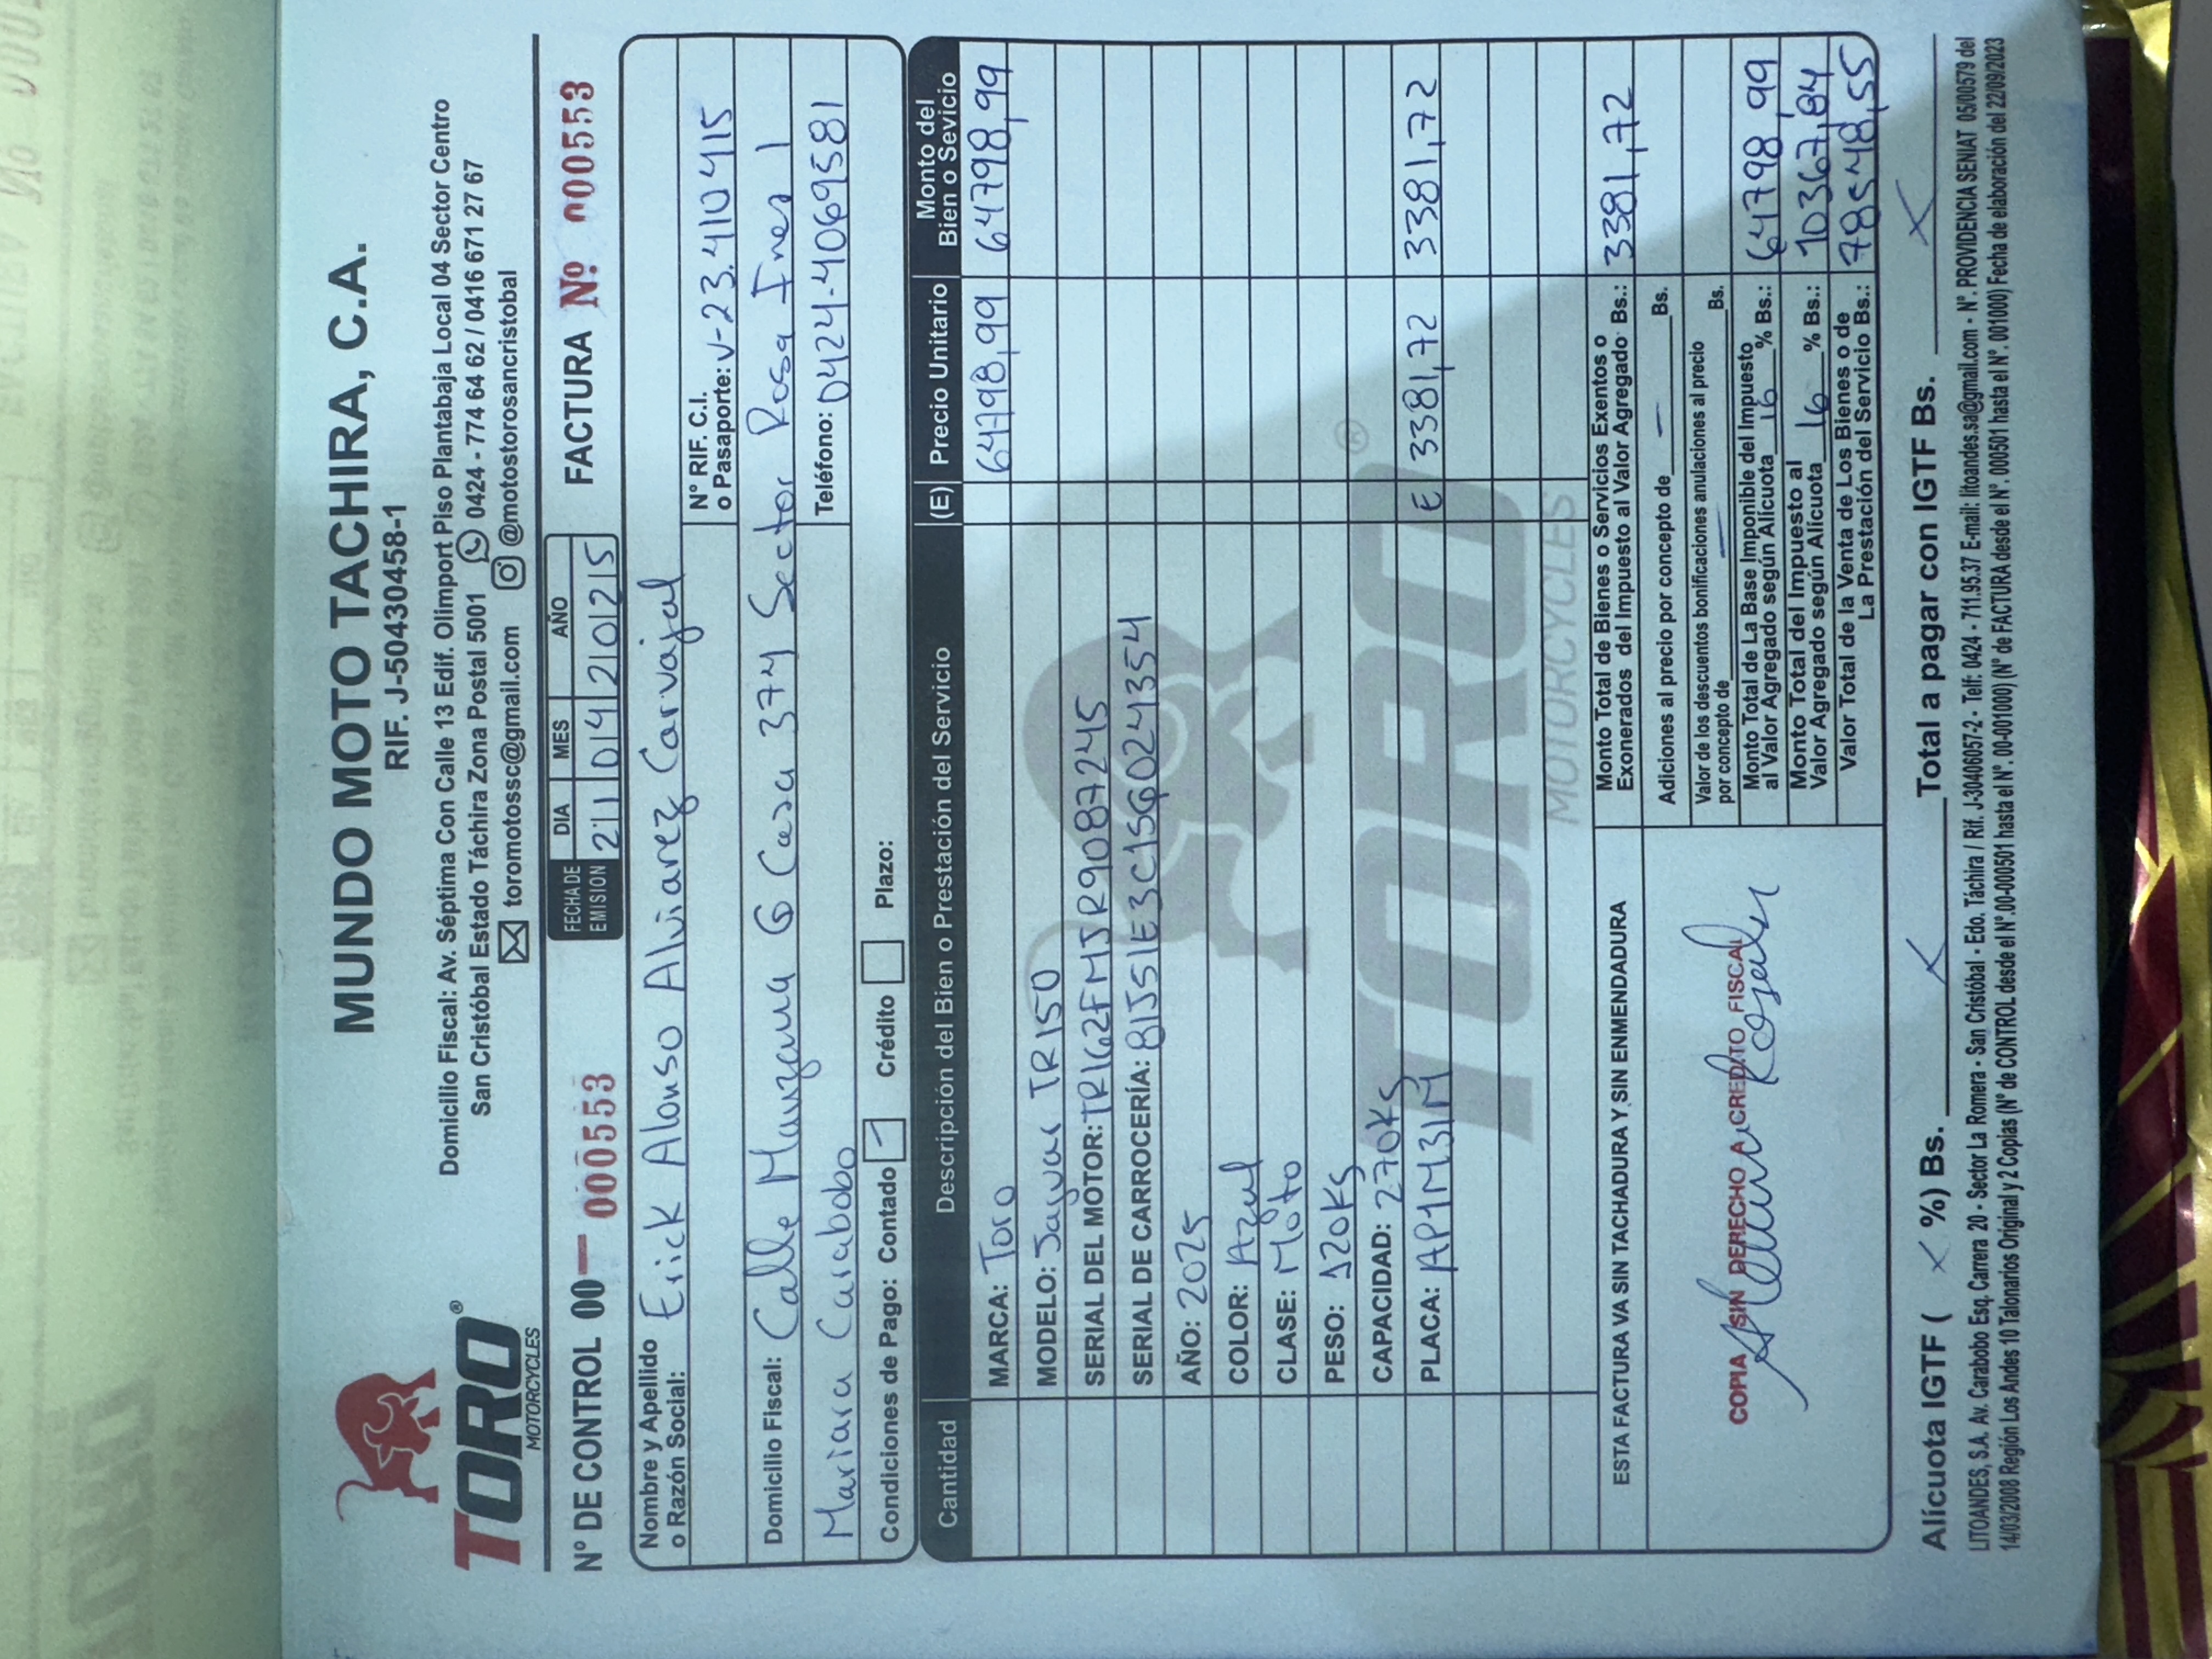 MUNDO MOTO TACHIRA, C.A.
RIF. J-50430458-1
TORO®
MOTORCYCLES
Domicilio Fiscal: Av. Séptima Con Calle 13 Edif. Olimport Piso Plantabaja Local 04 Sector Centro
San Cristóbal Estado Táchira Zona Postal 5001 0424 - 774 64 62 / 0416 671 27 67
toromotossc@gmail.com @motostorosancristobal
N° DE CONTROL 00- 000553
FECHA DE EMISION DIA MES AÑO
21 04 2025
FACTURA Nº 000553
Nombre y Apellido
o Razón Social: Erick Alonso Alviarez Carvajal
N° RIF. C.I.
o Pasaporte: V-23.410415
Domicilio Fiscal: Calle Manzana G Casa 374 Sector Rosa Ines 1
Mariara Carabobo
Teléfono: 0424-4069581
Condiciones de Pago: Contado Crédito Plazo:
Cantidad Descripción del Bien o Prestación del Servicio (E) Precio Unitario Monto del Bien o Sevicio
MARCA: Toro 64798,99 64798,99
MODELO: Jaguar TR150
SERIAL DEL MOTOR: TR162FMJR9087245
SERIAL DE CARROCERÍA:
AÑO: 2025
COLOR: Azul
CLASE: Moto
PESO: 120KS
CAPACIDAD: 270KS
PLACA: AP1M31M E 3381,72 3381,72
TORO®
MOTORCYCLES
ESTA FACTURA VA SIN TACHADURA Y SIN ENMENDADURA
COPIA SIN DERECHO A CREDITO FISCAL
Monto Total de Bienes o Servicios Exentos o
Exonerados del Impuesto al Valor Agregado Bs.: 3381,72
Adiciones al precio por concepto de - Bs.
Valor de los descuentos bonificaciones anulaciones al precio
por concepto de - Bs.
Monto Total de La Base Imponible del Impuesto
al Valor Agregado según Alícuota 16 % Bs.: 64798,99
Monto Total del Impuesto al
Valor Agregado según Alícuota 16 % Bs.: 10367,84
Valor Total de la Venta de Los Bienes o de
La Prestación del Servicio Bs.: 78548,55
Alícuota IGTF ( X %) Bs. X Total a pagar con IGTF Bs. X
LITOANDES, S.A. Av. Carabobo Esq. Carrera 20 - Sector La Romera - San Cristóbal - Edo. Táchira / Rif. J-30406057-2 - Telf: 0424 - 711.95.37 E-mail: litoandes.sa@gmail.com - N°. PROVIDENCIA SENIAT 05/00579 del
14/03/2008 Región Los Andes 10 Talonarios Original y 2 Copias (N° de CONTROL desde el N°.00-000501 hasta el N°. 00-001000) (N° de FACTURA desde el N°. 000501 hasta el N°. 001000) Fecha de elaboración del 22/09/2023